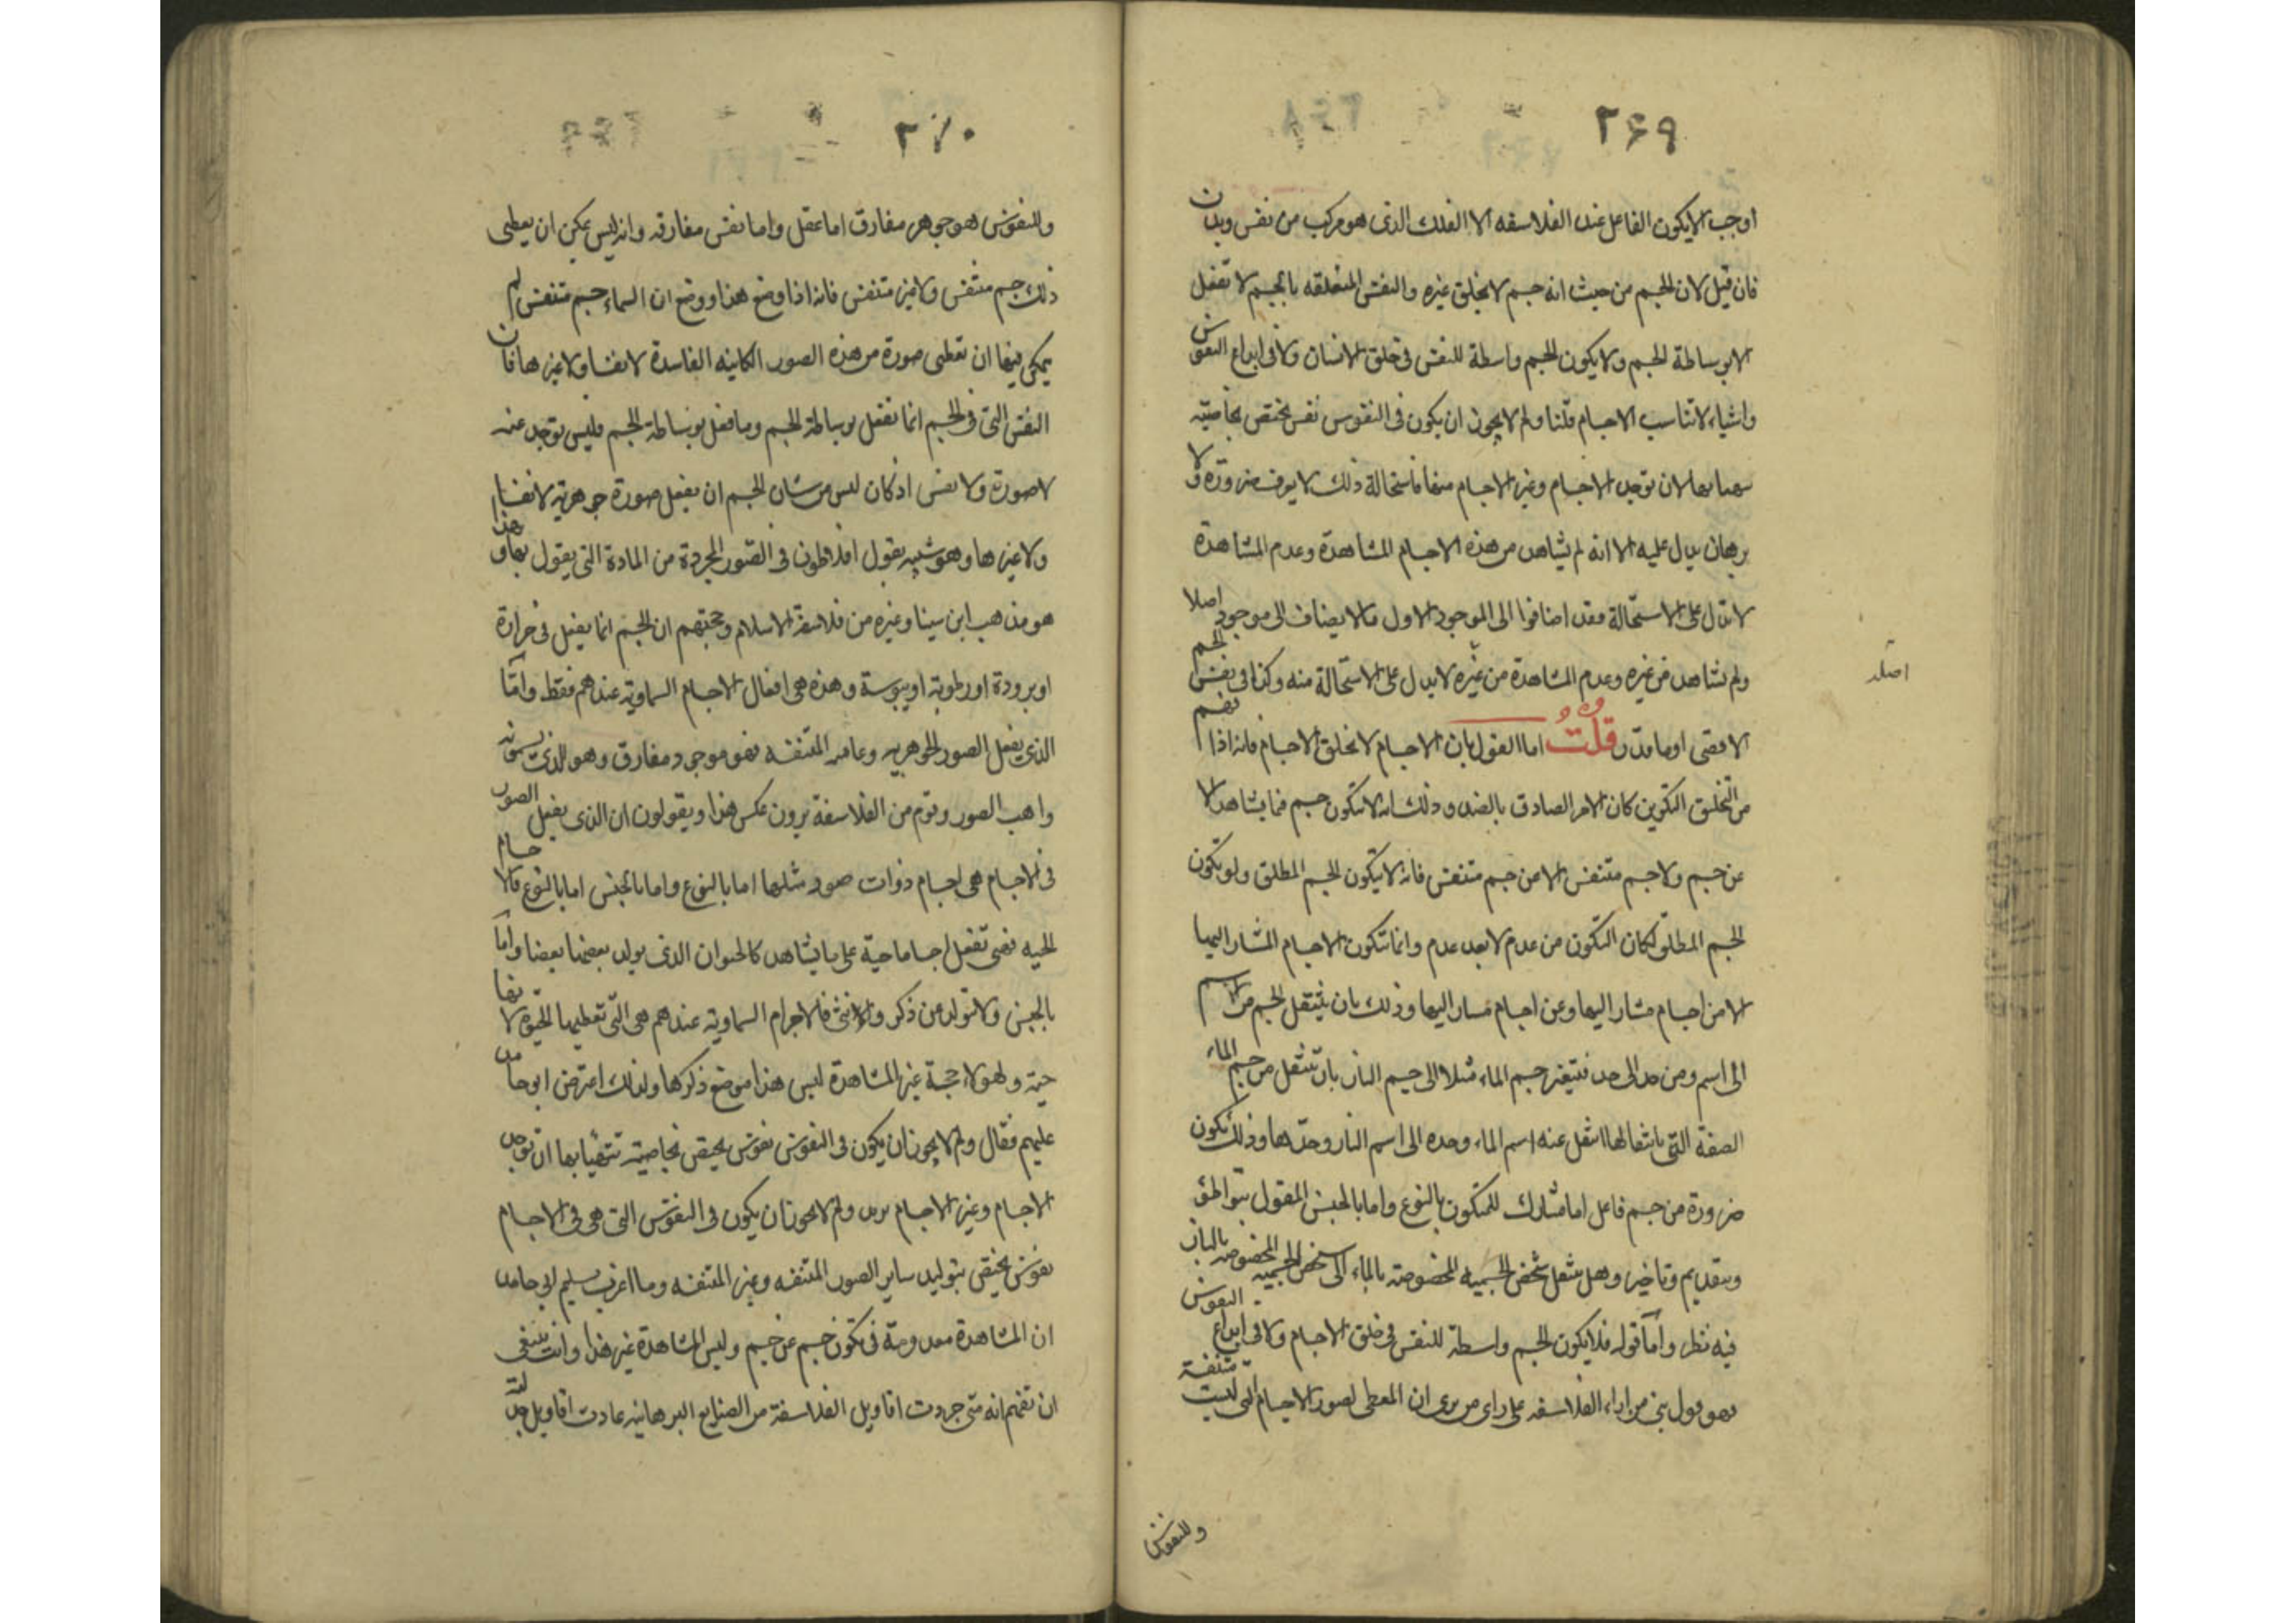 ٢۶٩
اوجب الا يكون الفاعل عند الفلاسفه الا الفلك الذى هو مركب من نفس وبدن
فان قيل لان الجسم من حيث انه جسم لا يخلق غيره والنفس المتعلقه بالجسم لا تفعل
الا بوساطة الجسم ولا يكون الجسم واسطة للنفس فى خلق الانسان ولا فى ابداع النفوس
واشياء لا تناسب الاجسام قلنا ولم لا يجوز ان يكون فى النفوس نفس يختص بخاصيته
يتهيا بها لان توجد الاجسام وغير الاجسام منها فاستحالة ذلك لا يعرف ضرورة ولا
برهان يدل عليه الا انه لم يشاهد من هذه الاجسام المشاهدة وعدم المشاهدة
لا تدل على الاستحالة فقد اضافوا الى الموجود الاول ما لا يضاف الى موجود اصلا
اصلد
ولم نشاهد من غيره وعدم المشاهدة من غيره لا يدل على الاستحالة منه وكذا فى نفس الجسم
الاقصى او ما قدر قلت اما القول بان الاجسام لا تخلق الاجسام فانه اذا نفهم
من التخلق التكوين كان الامر الصادق بالضد وذلك انه لا يتكون جسم فيما يشاهد الا
عن جسم ولا جسم متنفس الا عن جسم متنفس فانه لا يتكون الجسم المطلق ولو تكون
الجسم المطلق لكان التكون من عدم لا بعد عدم وانما تتكون الاجسام المشار اليها
الا من اجسام مشار اليها وعن اجسام مشار اليها وذلك بان ينتقل الجسم من اسم
الى اسم ومن حد الى حد فيتغير جسم الماء مثلا الى جسم النار بان تنتقل من جسم الماء
الصفة التى بانتقالها انتقل عنه اسم الماء وحده الى اسم النار وحدها وذلك تكون
ضرورة من جسم فاعل اما مشارك للمتكون بالنوع واما بالجنس المقول بتواطئ
وبتقديم وتاخير وهل تنتقل شخص الجسميه المخصوصة بالماء الى شخص الجسمية المخصوصة بالنار
فيه نظر واما قوله فلا يكون الجسم واسطة للنفس فى خلق الاجسام ولا فى ابداع النفوس
فهو قول بنى من اراء الفلاسفه على راى من يرى ان المعطى لصور الاجسام التى ليست متنفسة
وللنفوس
٢٧٠
وللنفوس هو جوهر مفارق اما عقل واما نفس مفارقه وانه ليس يمكن ان يعطى
ذلك جسم متنفس ولا غير متنفس فانه اذا وضع هذا ووضع ان السماء جسم متنفس لم
يمكن فيها ان تعطى صورة من هذه الصور الكاينه الفاسدة لا نفسا ولا غيرها فان
النفس التى فى الجسم انما تفعل بوساطة الجسم وما فعل بوساطة الجسم فليس توجد عنه
لا صورة ولا نفس اذ كان ليس من شان الجسم ان يفعل صورة جوهرية لا نفسا
ولا غيرها وهو شبيه بقول افلاطون فى الصور المجردة من المادة التى يقول بها وهذا
هو مذهب ابن سينا وغيره من فلاسفة الاسلام وحجتهم ان الجسم انما يفعل فى حرارة
او برودة او رطوبة او يبوسة وهذه هى افعال الاجسام السماوية عندهم فقط واما
الذى يفعل الصور الجوهريه وعامه المتنفسه فهو موجود مفارق وهو الذى يسمونه
واهب الصور وقوم من الفلاسفة يرون عكس هذا ويقولون ان الذى يفعل الصور
فى الاجسام هى اجسام ذوات صور مثلها اما بالنوع واما بالجنس اما بالنوع فالاجسام
الحيه فهى تفعل اجساما حية على ما يشاهد كالحيوان الذى يولد بعضها بعضا واما
بالجنس ولا تتولد عن ذكر وانثى فالاجرام السماوية عندهم هى التى تعطيها الحيوه لانها
حية ولهولاء حجة غير المشاهدة ليس هذا موضع ذكرها ولذلك اعترض ابو حامد
عليهم فقال ولم لا يجوز ان يكون فى النفوس نفوس يختص بخاصية تتهيا بها ان توجد
الاجسام وغير الاجسام يريد ولم لا يجوز ان يكون فى النفوس التى هى فى الاجسام
نفوس يختص بتوليد ساير الصور المتنفسه وغير المتنفسه وما اغرب تسليم ابى حامد
ان المشاهدة معدومة فى تكون جسم عن جسم وليس المشاهدة غير هذا وانت ينبغى
ان تفهم انه متى جردت اقاويل الفلاسفة من الصنايع البرهانيه عادت اقاويل جدلية